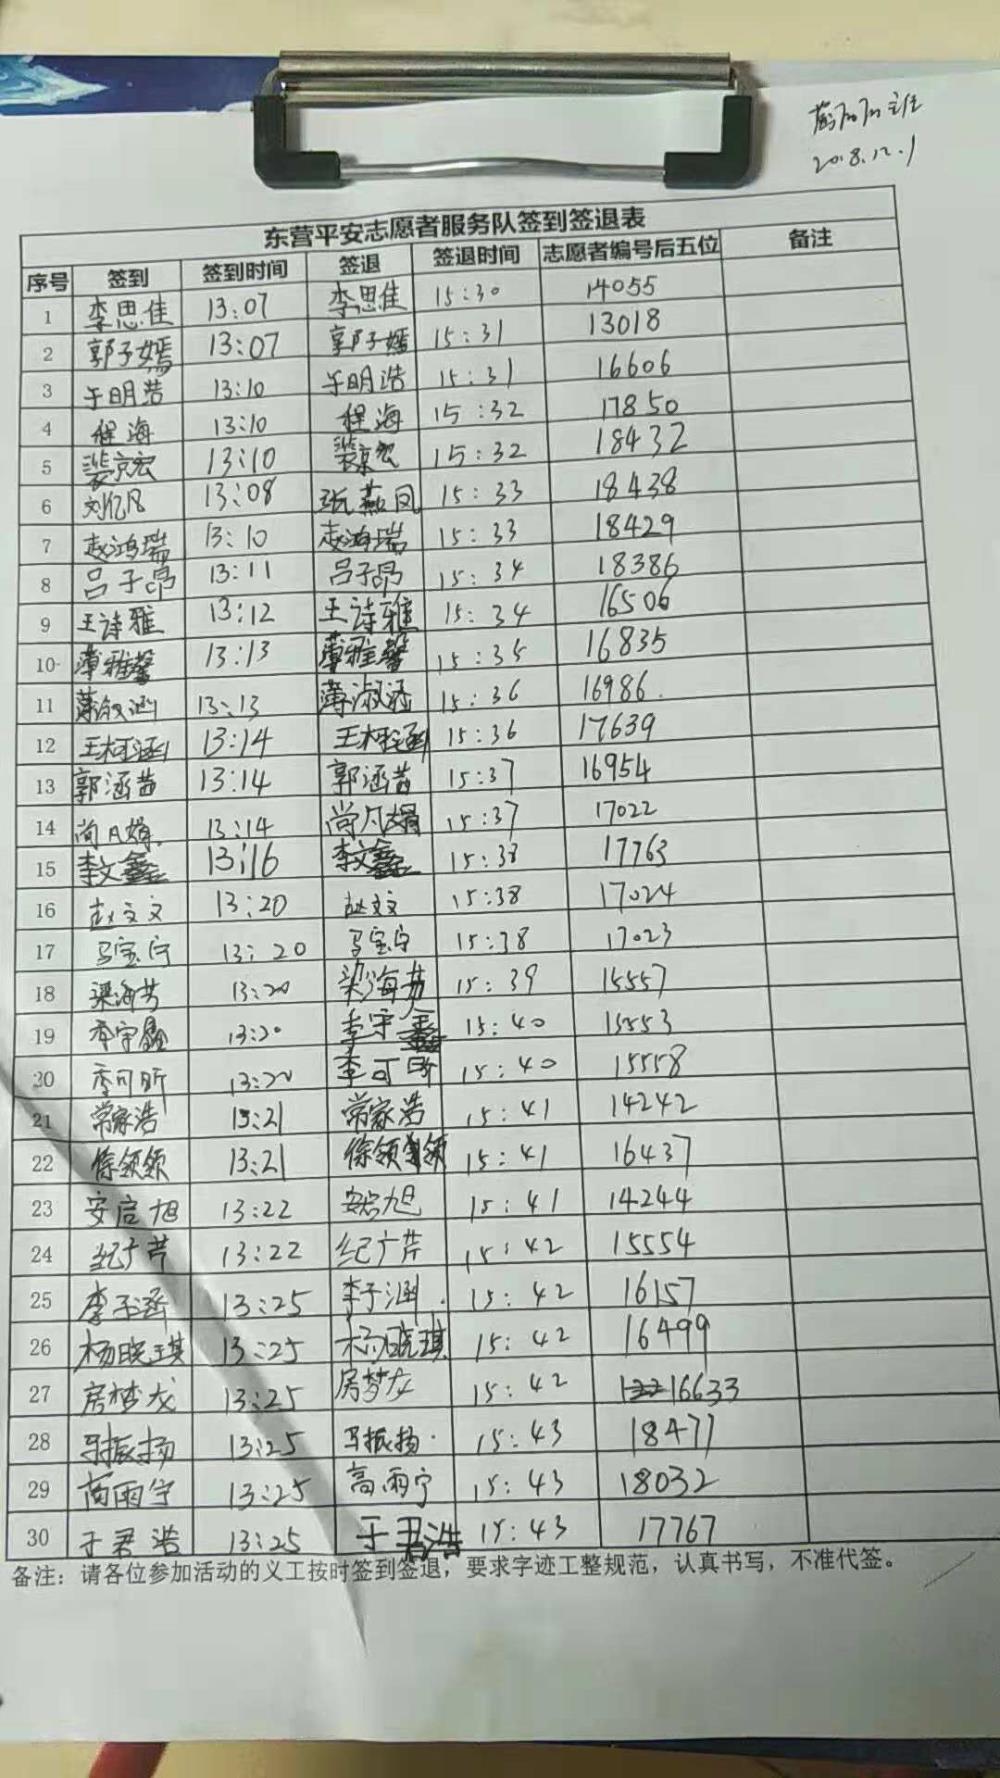 2018.12.1
东营平安志愿者服务队签到签退表
序号 签到 签到时间 签退 签退时间 志愿者编号后五位 备注
1 李思佳 13:07 李思佳 15:30 14055
2 郭子嫣 13:07 郭子嫣 15:31 13018
3 于明浩 13:10 于明浩 15:31 16606
4 程海 13:10 程海 15:32 17850
5 裴京宏 13:10 裴京宏 15:32 18432
6 刘亿凡 13:08 张燕凤 15:33 18438
7 赵鸿瑞 13:10 赵鸿瑞 15:33 18429
8 吕子昂 13:11 吕子昂 15:34 18386
9 王诗雅 13:12 王诗雅 15:34 16506
10 薄雅馨 13:13 薄雅馨 15:35 16835
11 薄淑涵 13:13 薄淑涵 15:36 16986
12 王柯涵 13:14 王柯涵 15:36 17639
13 郭涵茜 13:14 郭涵茜 15:37 16954
14 尚凡娟 13:14 尚凡娟 15:37 17022
15 李文鑫 13:16 李文鑫 15:38 17763
16 赵文文 13:20 赵文文 15:38 17024
17 马宝宁 13:20 马宝宁 15:38 17023
18 梁海芳 13:20 梁海芳 15:39 15557
19 李宇鑫 13:20 李宇鑫 15:40 15553
30 李可昕 13:20 李可昕 15:40 15558
21 常家浩 13:21 常家浩 15:41 14242
22 徐领领 13:21 徐领领 15:41 16437
23 安启旭 13:22 安启旭 15:41 14244
24 纪广芹 13:22 纪广芹 15:42 15554
25 李子涵 13:25 李子涵 15:42 16157
26 杨晓琪 13:25 杨晓琪 15:42 16499
27 房梦龙 13:25 房梦龙 15:42 16633
28 马振扬 13:25 马振扬 15:43 18477
29 高雨宁 13:25 高雨宁 15:43 18032
30 于君浩 13:25 于君浩 15:43 17767
备注：请各位参加活动的义工按时签到签退，要求字迹工整规范，认真书写，不准代签。